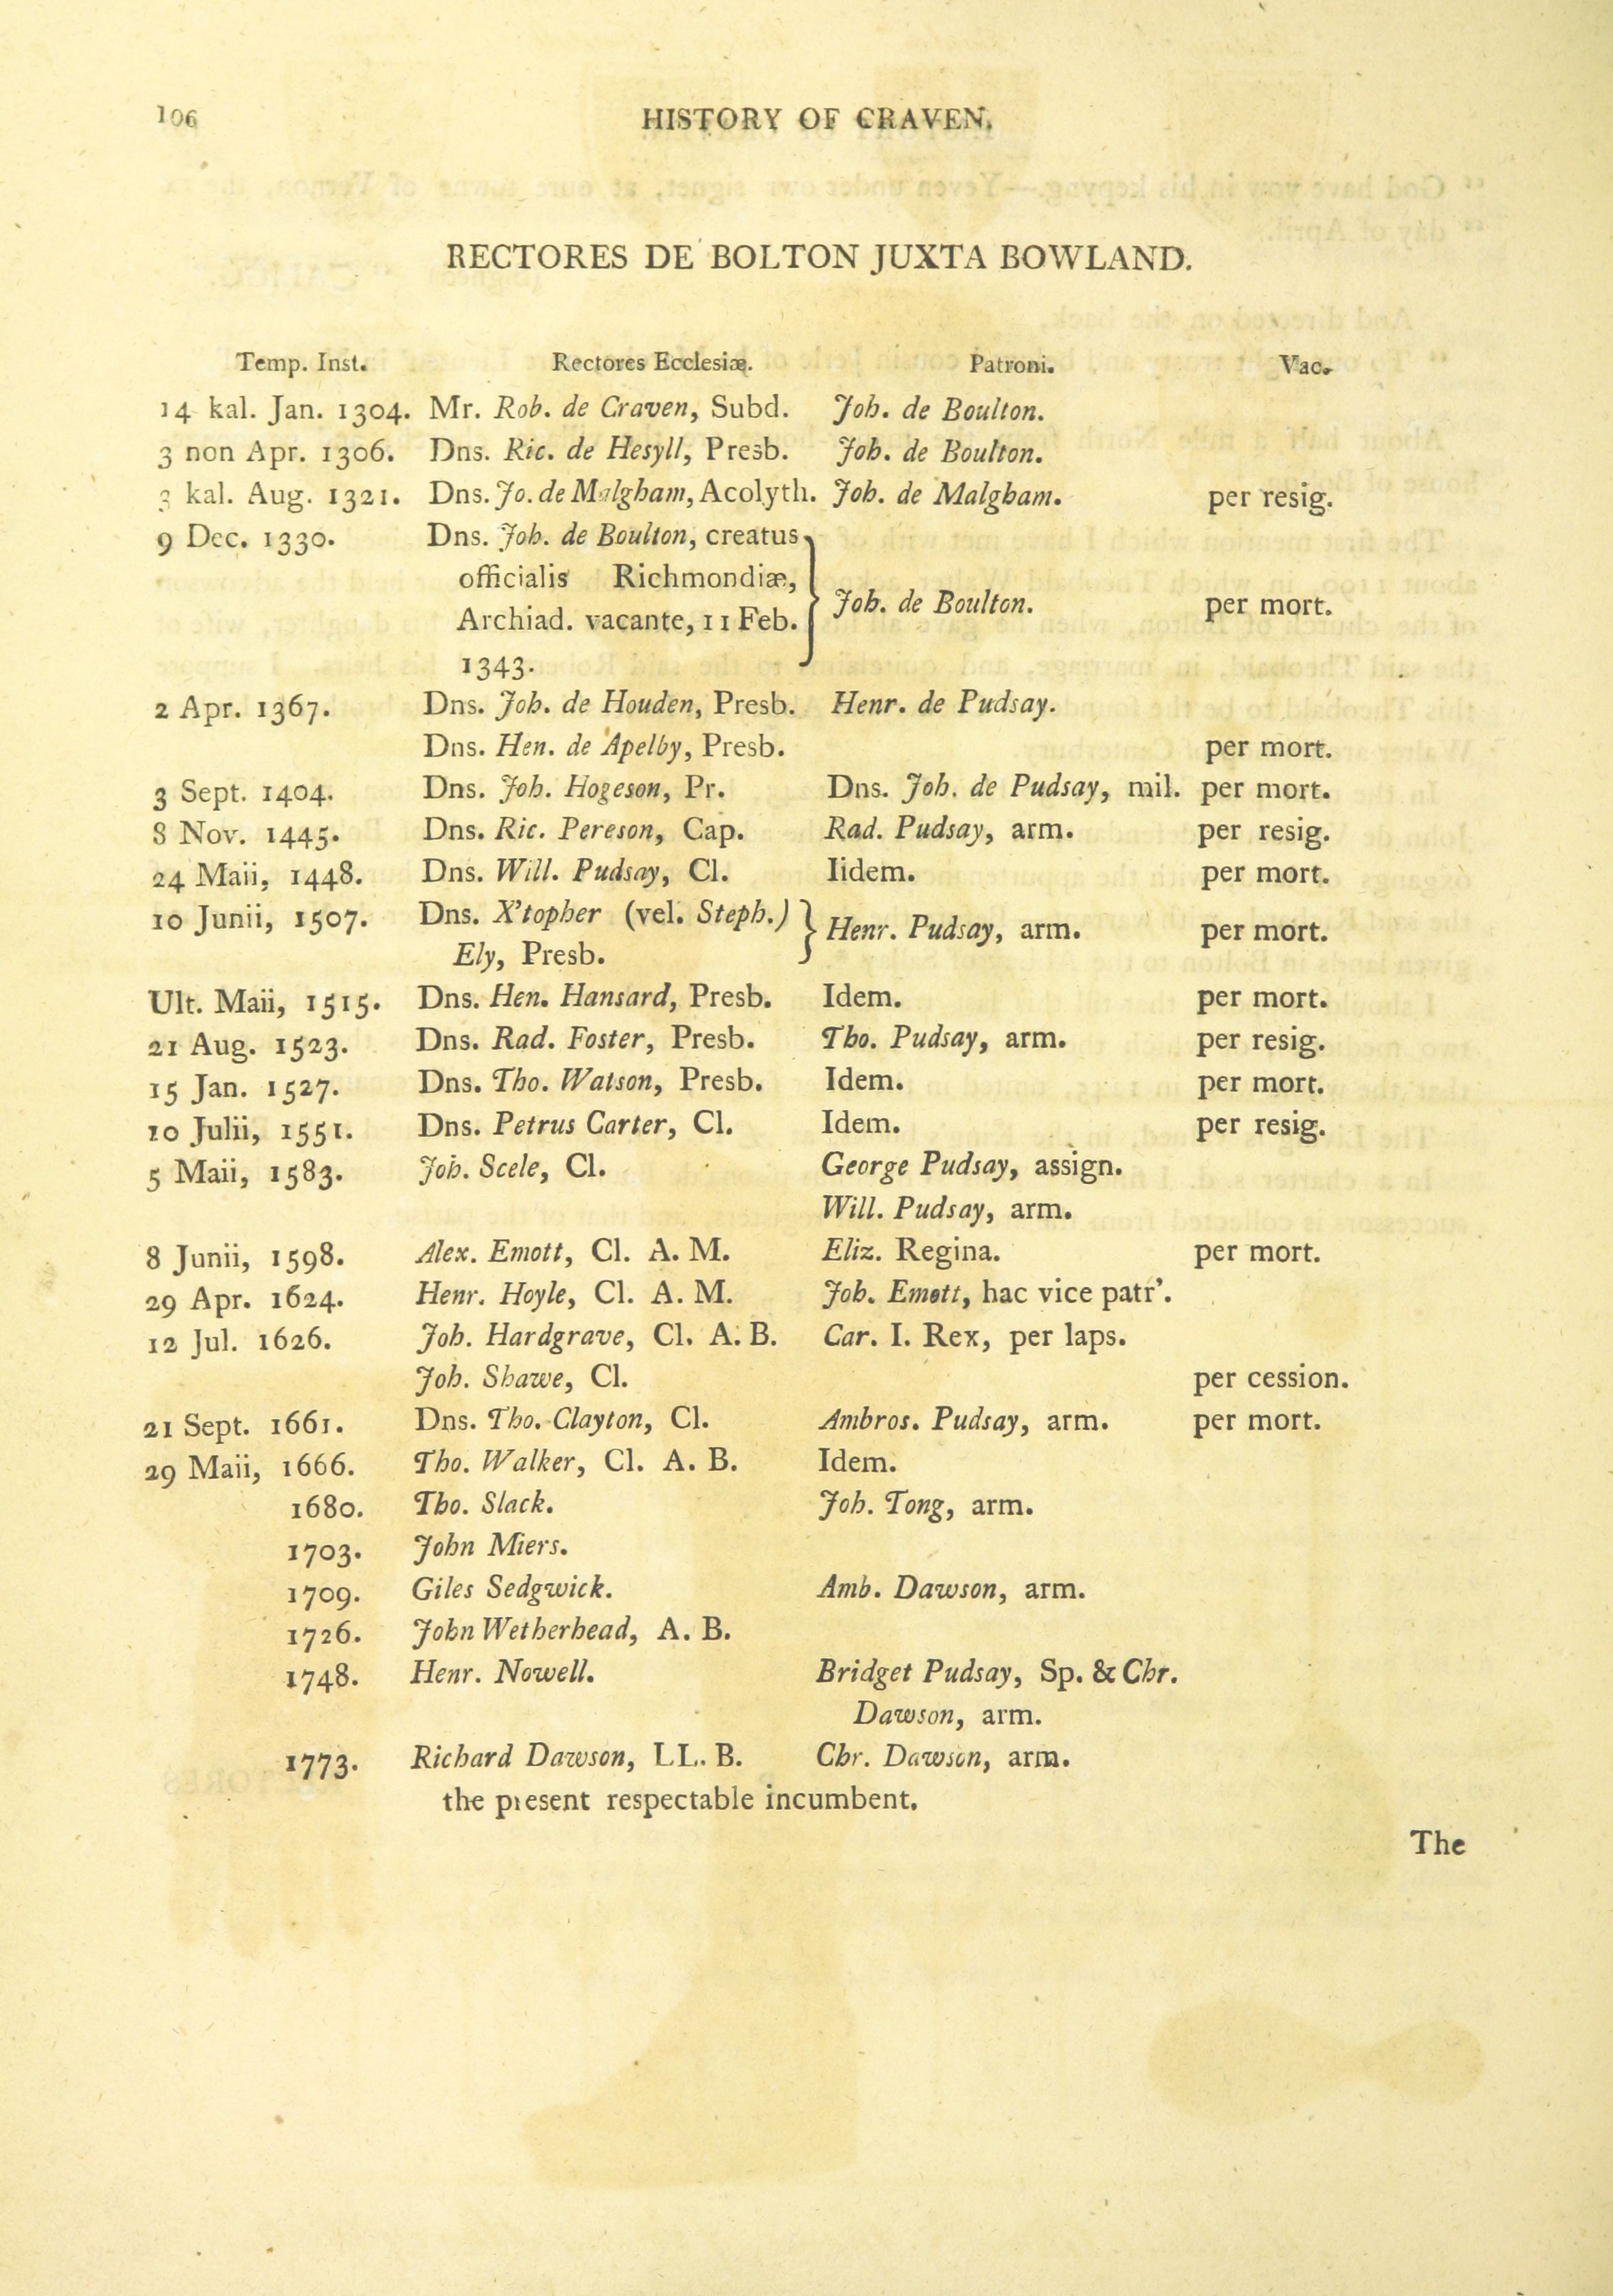 106 HISTORY OF CRAVEN.
RECTORES DE BOLTON JUXTA BOWLAND.
Temp. Inst. Rectores Ecclesiæ. Patroni. Vac.
14 kal. Jan. 1304. Mr. Rob. de Craven, Subd. Joh. de Boulton.
3 non Apr. 1306. Dns. Ric. de Hesyll, Presb. Joh. de Boulton.
3 kal. Aug. 1321. Dns. Jo. de Malgham, Acolyth. Joh. de Malgham. per resig.
9 Dec. 1330. Dns. Joh. de Boulton, creatus
officialis Richmondiæ,
Archiad. vacante, 11 Feb.
1343. } Joh. de Boulton. per mort.
2 Apr. 1367. Dns. Joh. de Houden, Presb. Henr. de Pudsay.
Dns. Hen. de Apelby, Presb. per mort.
3 Sept. 1404. Dns. Joh. Hogeson, Pr. Dns. Joh. de Pudsay, mil. per mort.
8 Nov. 1445. Dns. Ric. Pereson, Cap. Rad. Pudsay, arm. per resig.
24 Maii, 1448. Dns. Will. Pudsay, Cl. Iidem. per mort.
10 Junii, 1507. Dns. X'topher (vel. Steph.)
Ely, Presb. } Henr. Pudsay, arm. per mort.
Ult. Maii, 1515. Dns. Hen. Hansard, Presb. Idem. per mort.
21 Aug. 1523. Dns. Rad. Foster, Presb. Tho. Pudsay, arm. per resig.
15 Jan. 1527. Dns. Tho. Watson, Presb. Idem. per mort.
10 Julii, 1551. Dns. Petrus Carter, Cl. Idem. per resig.
5 Maii, 1583. Joh. Scele, Cl. George Pudsay, assign.
Will. Pudsay, arm.
8 Junii, 1598. Alex. Emott, Cl. A. M. Eliz. Regina. per mort.
29 Apr. 1624. Henr. Hoyle, Cl. A. M. Joh. Emott, hac vice patr'.
12 Jul. 1626. Joh. Hardgrave, Cl. A. B. Car. I. Rex, per laps.
Joh. Shawe, Cl. per cession.
21 Sept. 1661. Dns. Tho. Clayton, Cl. Ambros. Pudsay, arm. per mort.
29 Maii, 1666. Tho. Walker, Cl. A. B. Idem.
1680. Tho. Slack. Joh. Tong, arm.
1703. John Miers.
1709. Giles Sedgwick. Amb. Dawson, arm.
1726. John Wetherhead, A. B.
1748. Henr. Nowell. Bridget Pudsay, Sp. & Chr.
Dawson, arm.
1773. Richard Dawson, LL. B. Chr. Dawson, arm.
the present respectable incumbent.
The